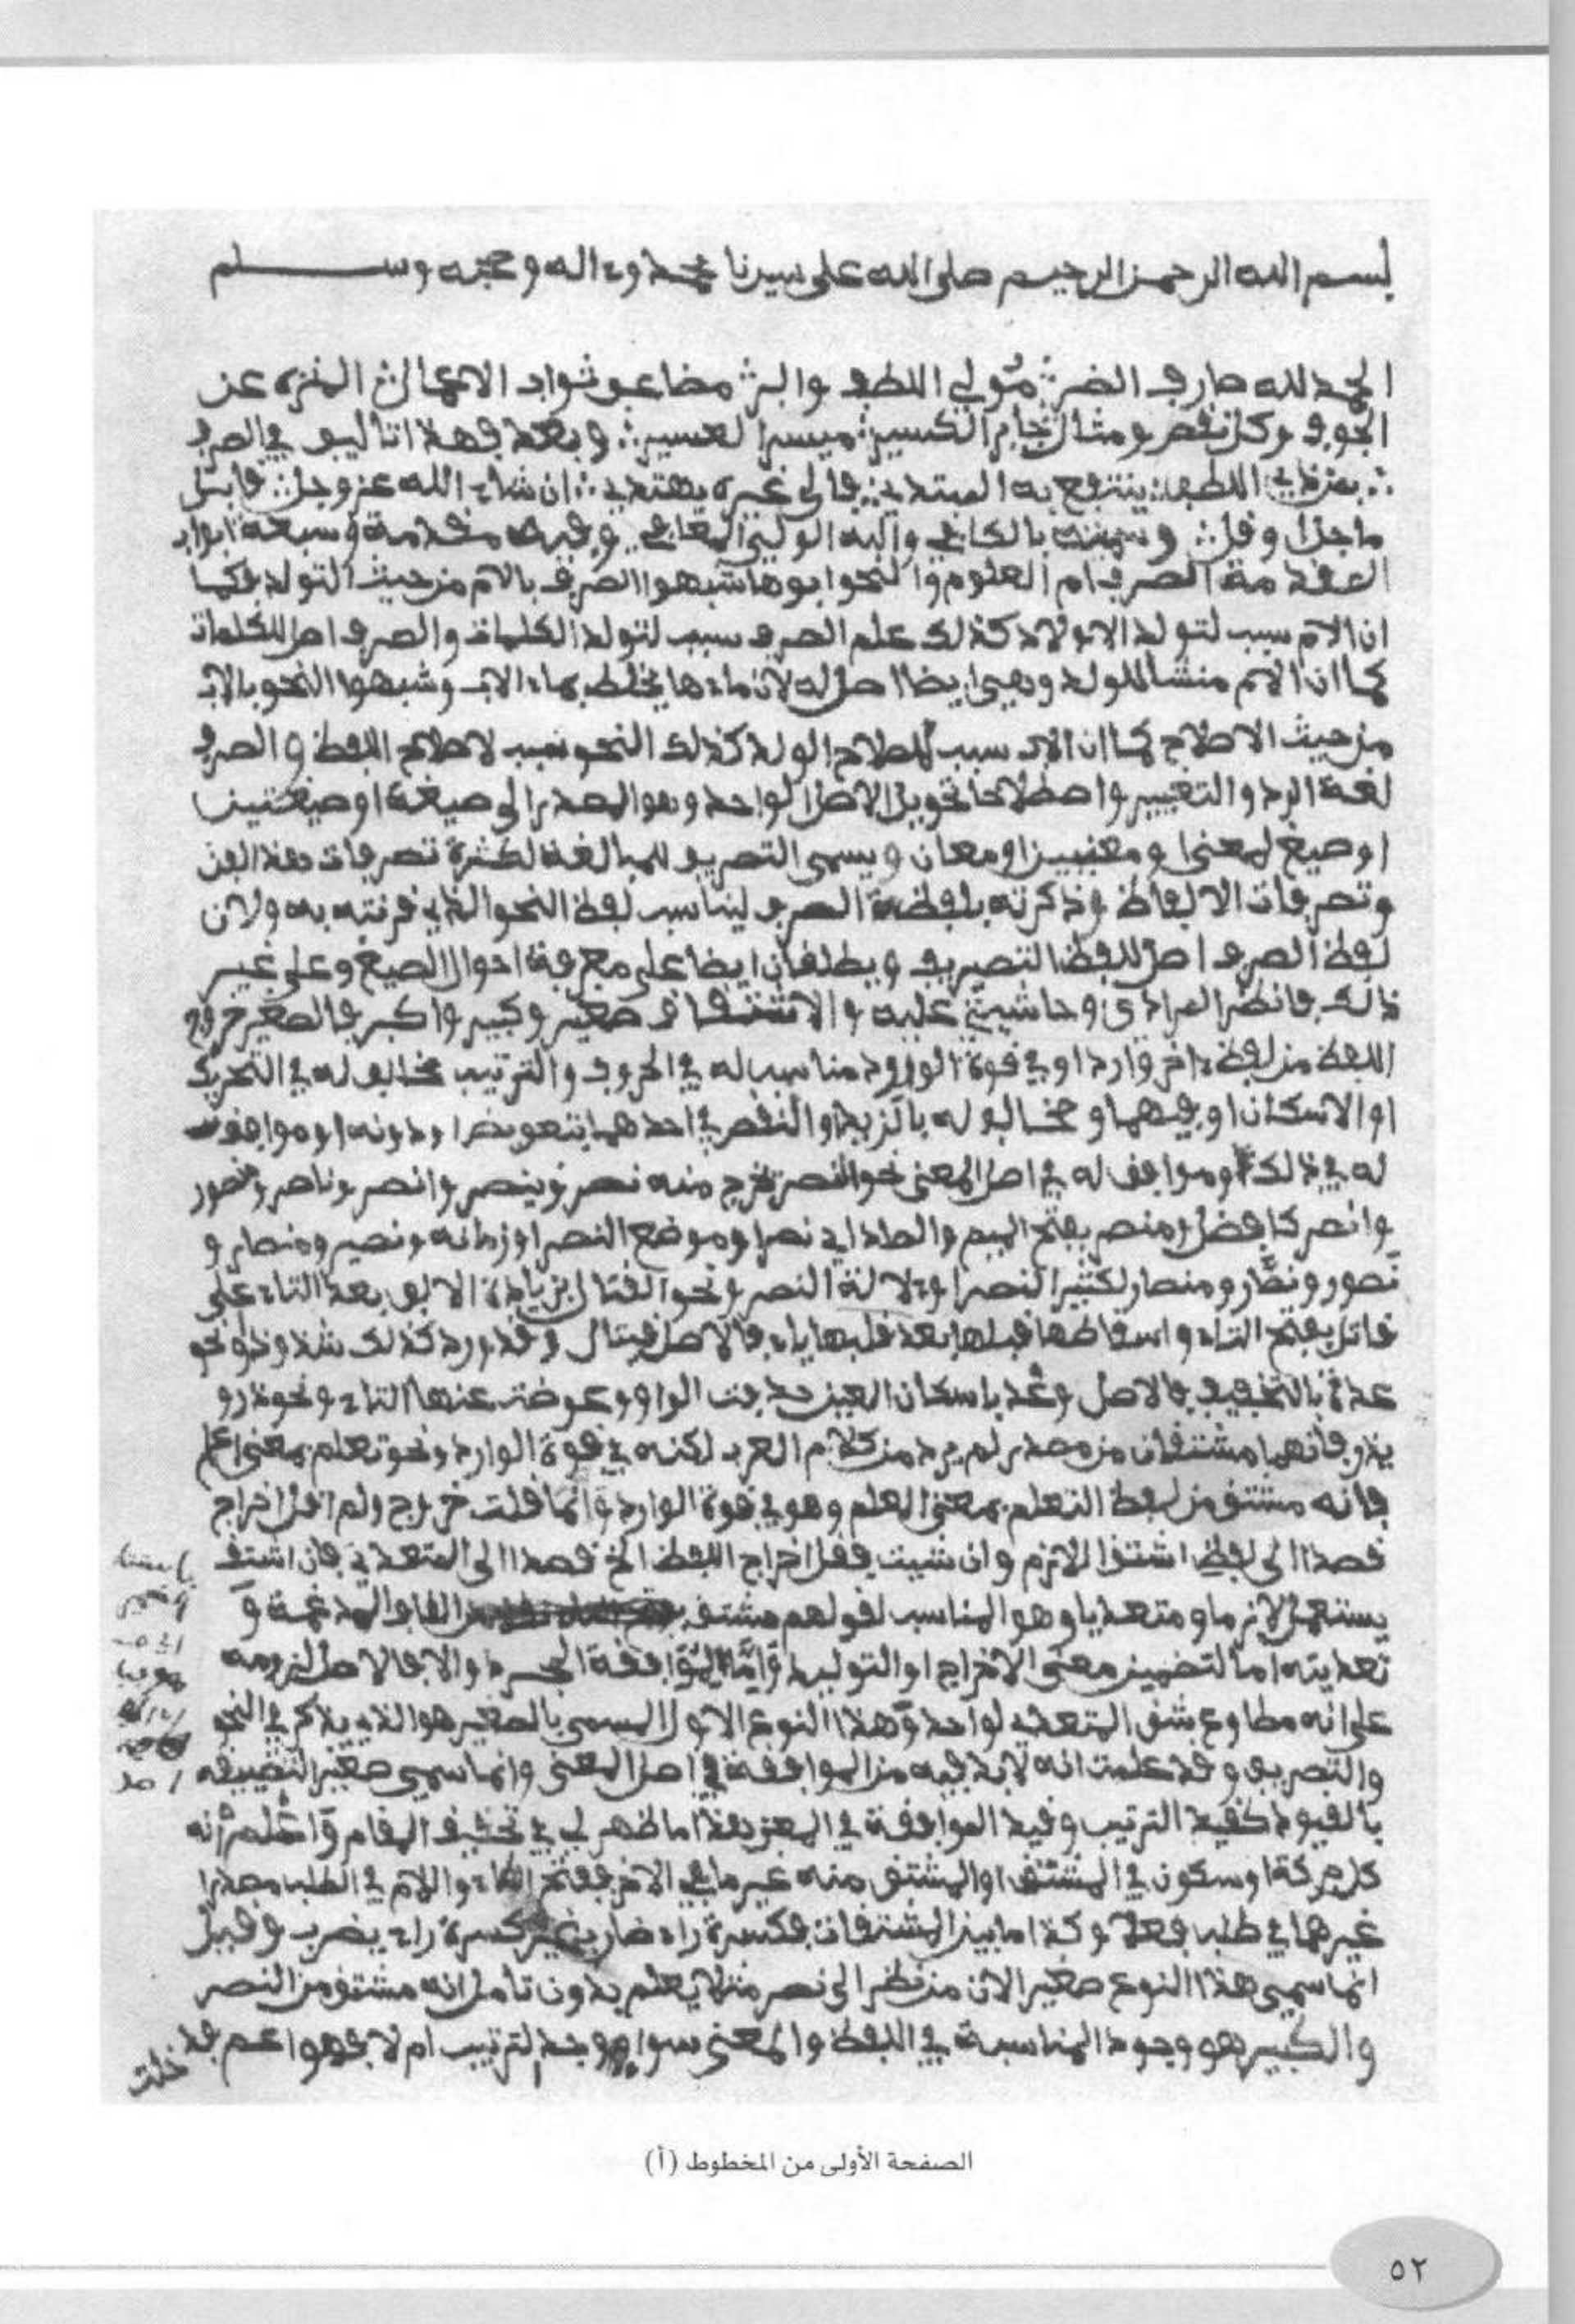 بسم الله الرحمن الرحيم صلى الله على سيدنا محمد وءاله وصحبه وسلم
الحمد لله صارف الضر مولي اللطف والبر مضاعف ثواب الاعمال المنزه عن
الجوف وكل نقص ومثال جابر الكسير ميسر العسير وبعد فهذا تاليف في الصرف
بعون ذي اللطف ينتفع به المبتدي فالى غيره يهتدي ان شاء الله عز وجل قابل
ما جل وقل وسميته بالكافي وفيه مقدمة وسبعة ابواب
المقدمة الصرف ام العلوم والنحو ابوها شبهوا الصرف بالام من حيث التولد فكما
ان الام سبب لتولد الاولاد كذلك علم الصرف سبب لتولد الكلمات والصرف اصل للكلمات
كما ان الام منشا للولد وهي ايضا اصل له لان ماءها يختلط بماء الاب وشبهوا النحو بالاب
من حيث الاصلاح كما ان الاب سبب لصلاح الولد كذلك النحو سبب لاصلاح اللفظ والصرف
لغة الرد والتغيير واصطلاحا تحويل الاصل الواحد وهو المصدر الى صيغة او صيغتين
او صيغ لمعنى او معنيين او معان ويسمى التصريف للمبالغة لكثرة تصرفات هذا الفن
وتصرفات الالفاظ وذكرته بلفظة الصرف ليناسب لفظ النحو الذي قرنته به ولان
لفظ الصرف اصل للفظ التصريف ويطلقان ايضا على معرفة احوال الصيغ وعلى غير
ذلك فانظر المرادي وحاشيتي عليه والاشتقاق صغير وكبير واكبر فالصغير خروج
اللفظ من لفظ ءاخر وارد او في قوة الورود مناسب له في الحروف والترتيب مخالف له في التحريك
او الاسكان او فيهما او مخالف له بالزيد او النقص في احدهما بتعويض او دونه او موافق
له في ذلك وموافق له في اصل المعنى نحو النصر تخرج منه نصر وينصر وانصر وناصر ومنصور
وانصر كافضل ومنصر بفتح الميم والصاد اي نصر او موضع النصر او زمانه ونصير ومنصار و
نصور ونصار ومنصار لكثير النصر او ءلالة النصر ونحو القتال بزيادة الالف بعد التاء على
قاتل بفتح التاء واسقاطها قبلها بعد قلبها ياء فالاصل قيتال وقد ورد كذلك شذوذا ونحو
عدة بالتخفيف فالاصل وعد باسكان العين حذفت الواو وعوضت عنها التاء ونحو ذرو
يذر فانهما مشتقان من مصدر لم يرد من كلام العرب لكنه في قوة الوارد ونحو تعلم بمعنى اعلم
فانه مشتق من لفظ التعلم بمعنى العلم وهو في قوة الوارد وانما قلت خروج ولم اقل اخراج
قصدا الى لفظ اشتق اللازم وان شيت فقل اخراج اللفظ الخ قصدا الى المتعدي فان اشتق
يستعمل لازما ومتعديا وهو المناسب لقولهم مشتق
تعديته اما لتضمين معنى الاخراج او التوليد واما لموافقة المجرد والا فالاصل لزومه
على انه مطاوع شق المتعدي لواحد وهذا النوع الاول المسمى بالصغير هو الذي يذكر في النحو
والتصريف وقد علمت انه لا بد فيه من الموافقة في اصل المعنى وانما سمي صغيرا لتضييقه
بالقيود كقيد الترتيب وقيد الموافقة في المعنى هذا ما ظهر لي في تحقيق المقام واعلم انه
كل حركة او سكون في المشتق او المشتق منه غير ما في الاخر ففتح الطاء واللام في الطلب مصدرا
غيرهما في طلب فعلا وكذا ما بين المشتقات فكسرة راء ضارب غير كسرة راء يضرب وقيل
انما سمي هذا النوع صغيرا لان من نظر الى نصر مثلا يعلم بدون تامل انه مشتق من النصر
والكبير هو وجود المناسبة في اللفظ والمعنى سواء وجد الترتيب ام لا فهو اعم قد
خلت
الصفحة الأولى من المخطوط (أ)
٥٢